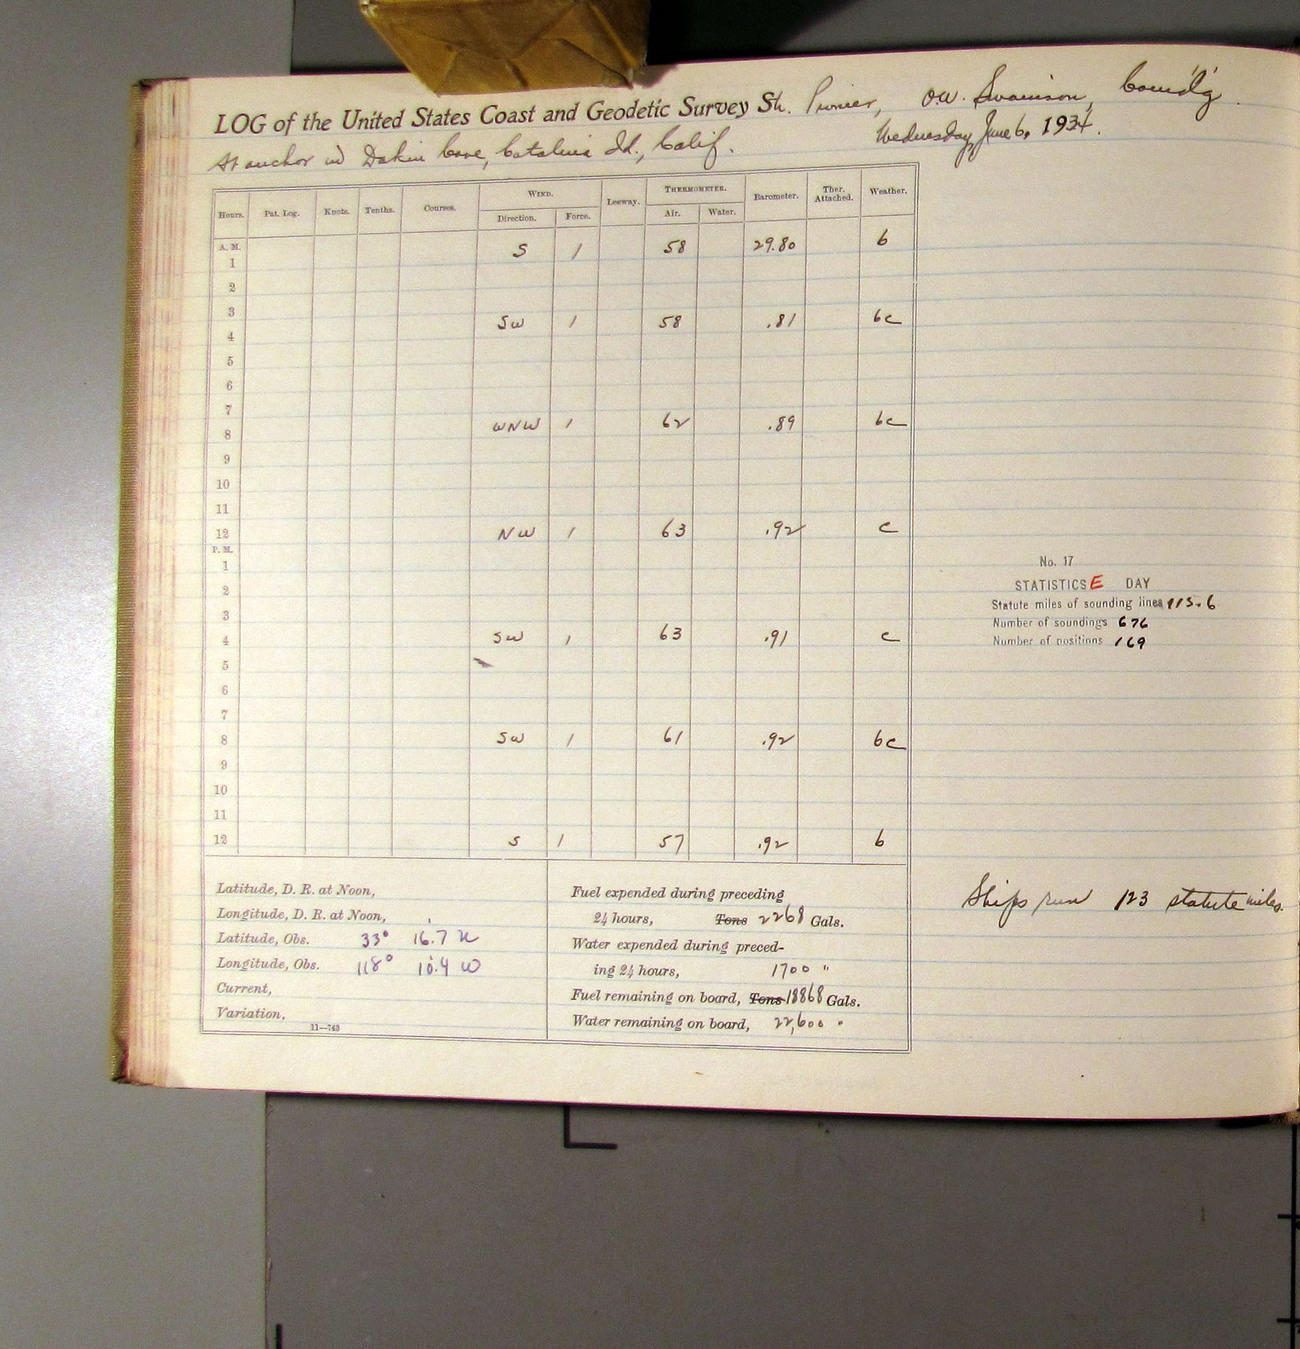 LOG of the United States Coast and Geodetic Survey Str. Pioneer, O.W. Swainson, Comd'g.
At anchor in Dakin Cove, Catalina Id., Calif. Wednesday, June 6, 1934.
Hours. Pat. Log. Knots. Tenths. Courses. WIND. Leeway. THERMOMETER. Barometer. Ther. Attached. Weather.
Direction. Force. Air. Water.
A. M. S 1 58 29.80 b
1
2
3
SW 1 58 .81 bc
4
5
6
7
WNW 1 62 .89 bc
8
9
10
11
12 NW 1 63 .92 c
P. M.
1
2
3
4 SW 1 63 .91 c
5
6
7
8 SW 1 61 .92 bc
9
10
11
12 S 1 57 .92 b
No. 17
STATISTICS E DAY
Statute miles of sounding lines 115.6
Number of soundings 676
Number of positions 169
Ships run 123 statute miles.
Latitude, D. R. at Noon,
Longitude, D. R. at Noon,
Latitude, Obs. 33° 16.7 N
Longitude, Obs. 118° 10.4 W
Current,
Variation,
11—743
Fuel expended during preceding
24 hours, Tons 2268 Gals.
Water expended during preced-
ing 24 hours, 1700 "
Fuel remaining on board, Tons 18868 Gals.
Water remaining on board, 22,600 "